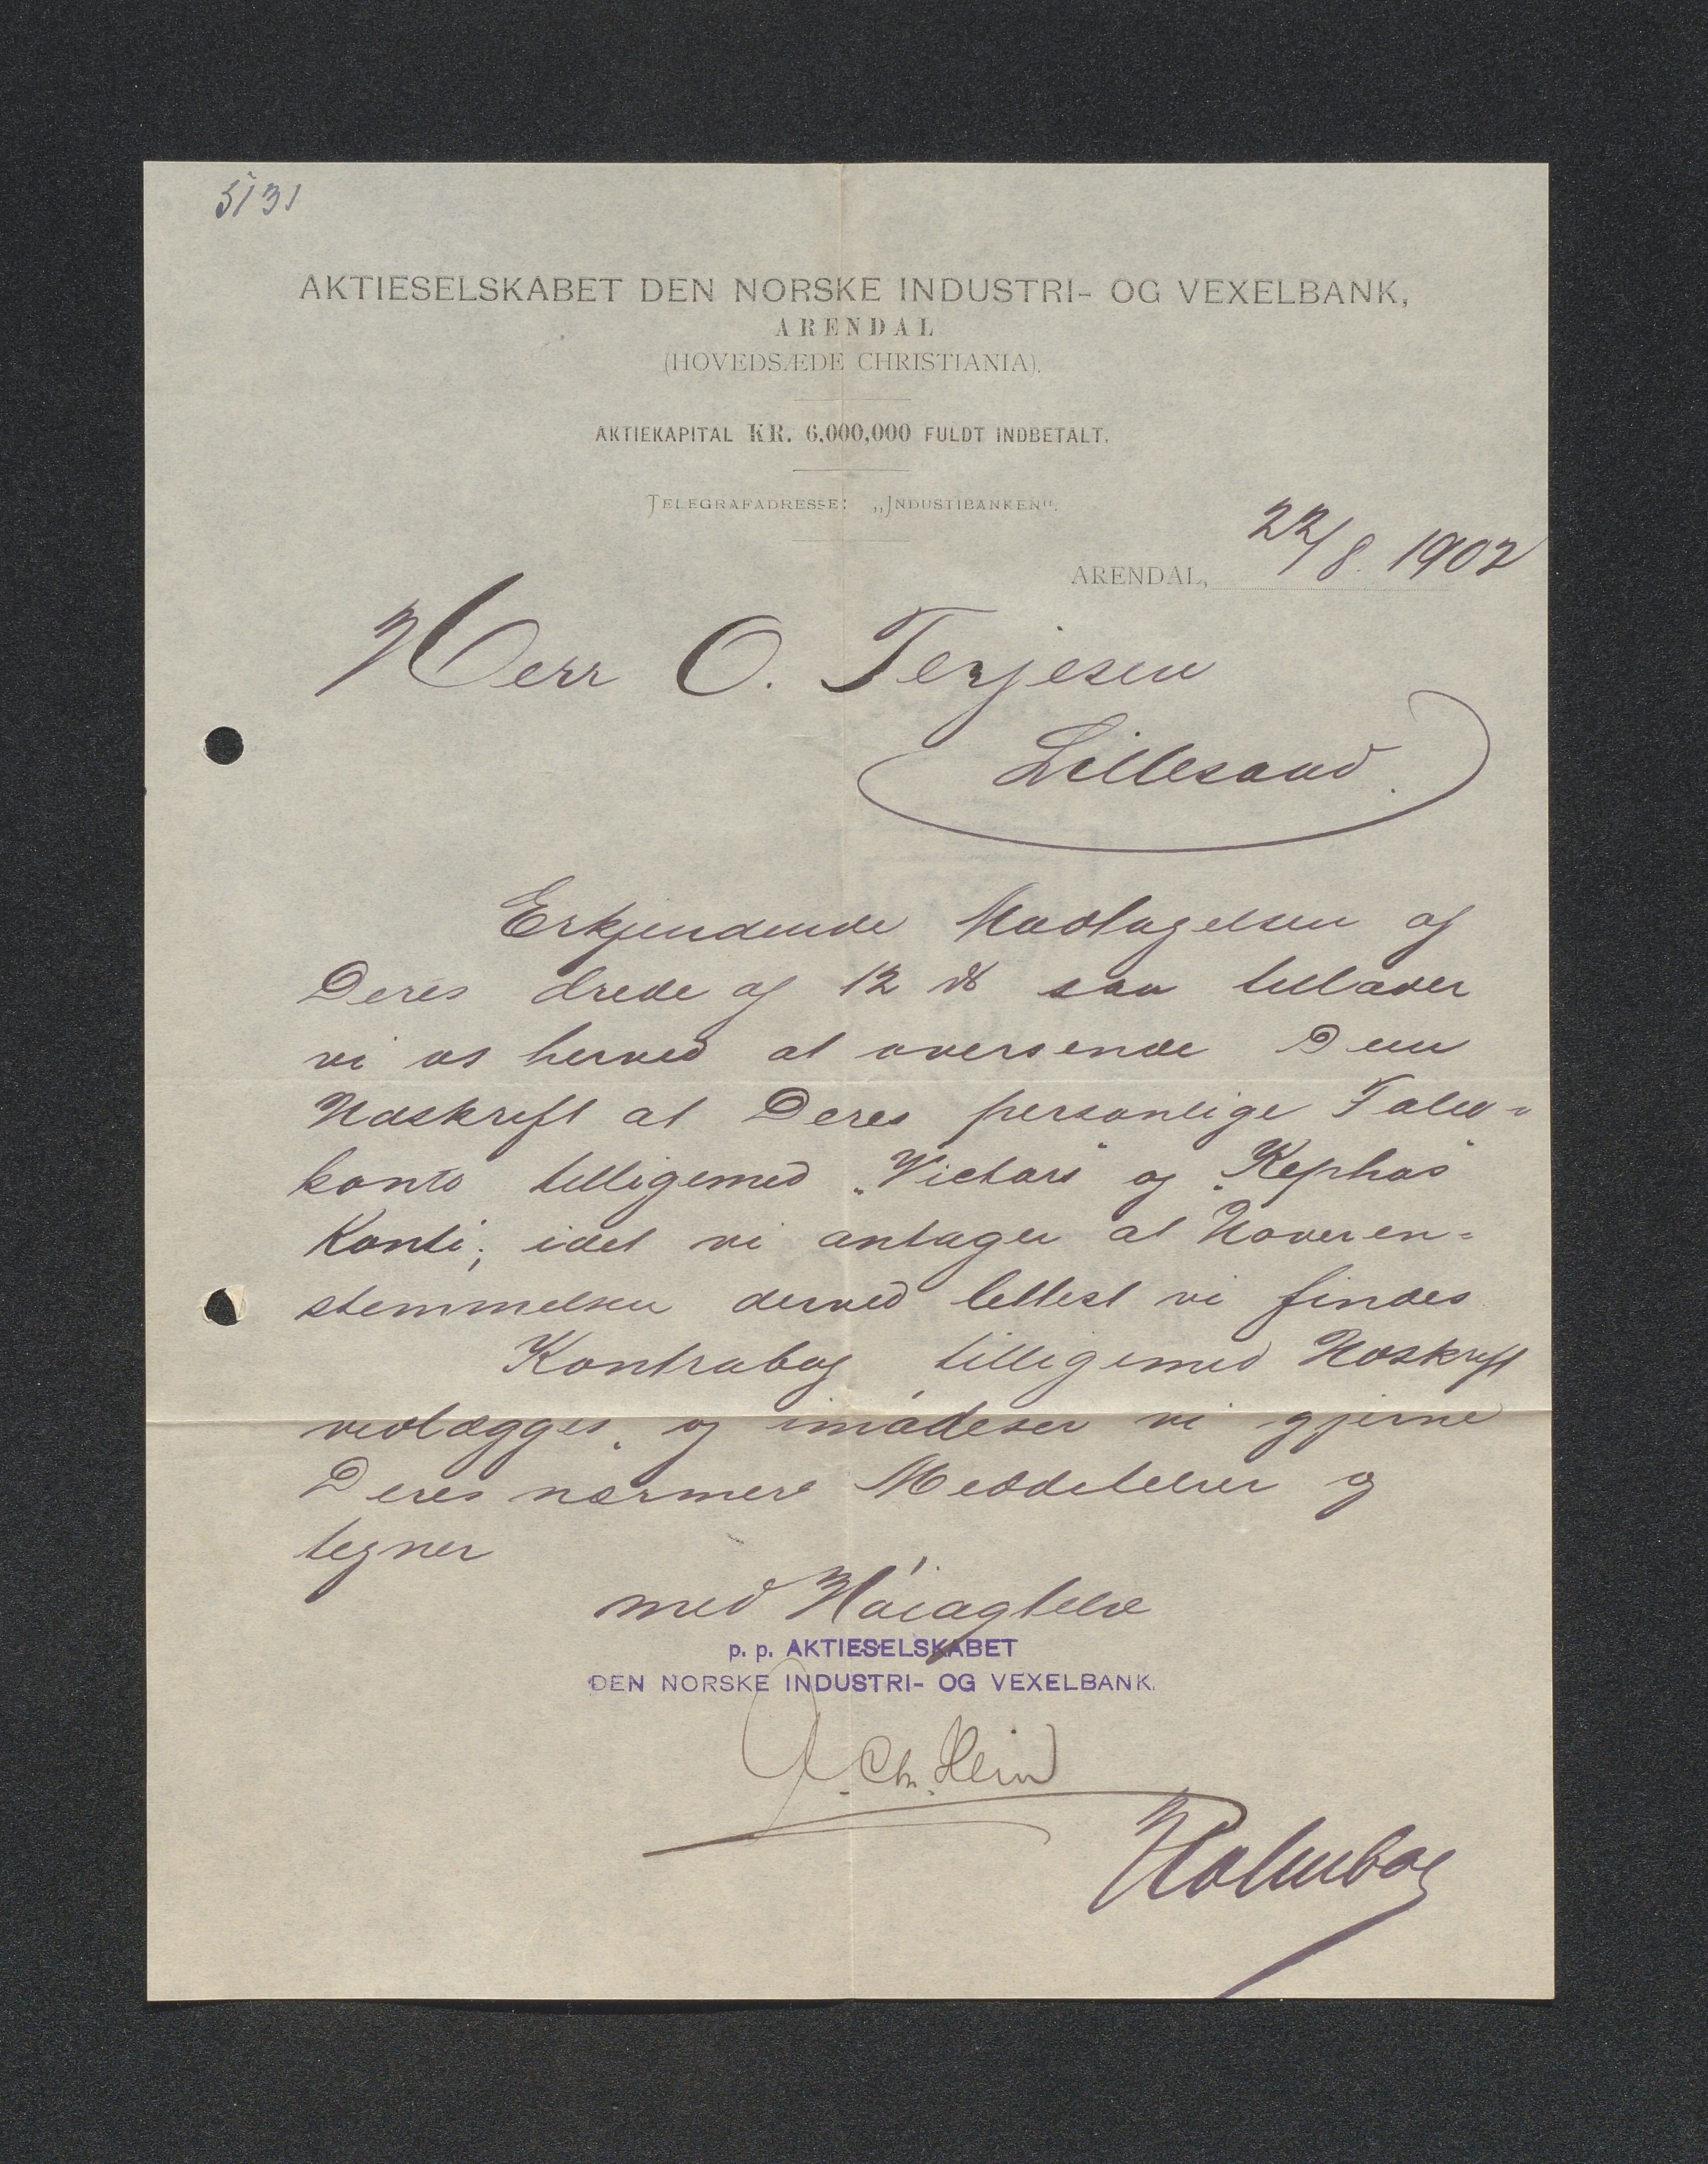 5131
AKTIESELSKABET DEN NORSKE INDUSTRI- OG VEXELBANK,
ARENDAL
(HOVEDSÆDE CHRISTIANIA).
AKTIEKAPITAL KR. 6,000,000 FULDT INDBETALT.
TELEGRAFADRESSE: „INDUSTIBANKEN".
ARENDAL, 22/8. 1902
Herr O. Terjesen
Lillesand.
Erkjendende Modtagelsen af
Deres ærede af 12 ds saa tillader
vi os herved at oversende Dem
Udskrift af Deres personlige Folio-
konto tilligemed „Victors" og „Kephas"
Konti; idet vi antager at Uoveren-
stemmelsen derved lettest vi findes
Kontrabog tilligemed Udskrift
vedlægges, og imødeser vi gjerne
Deres nærmere Meddelelser og
tegner
med Høiagtelse
p. p. AKTIESELSKABET
DEN NORSKE INDUSTRI- OG VEXELBANK.
Chr.
Holmboe